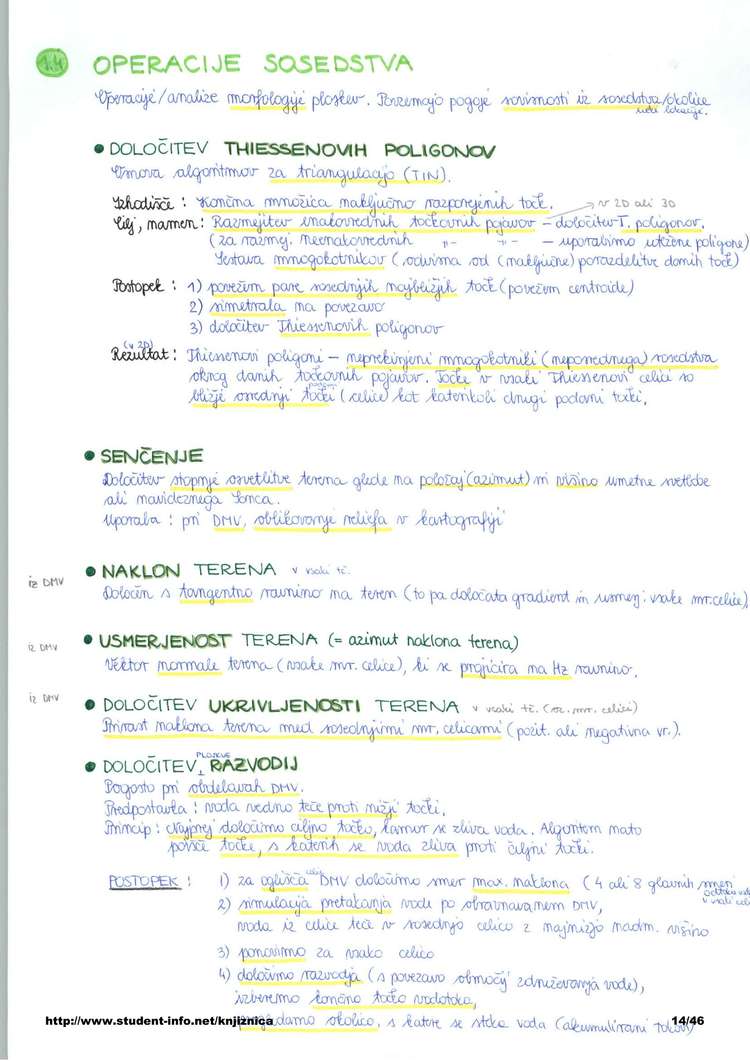 1.4 OPERACIJE SOSEDSTVA
Operacije/analize morfologije ploskev. Povzemajo pogoje sovisnosti iz sosedstva/okolice
neke lokacije.
• DOLOČITEV THIESSENOVIH POLIGONOV
Osnova algoritmov za triangulacijo (TIN).
Izhodišče : končna množica naključno razporejenih točk. → v 2D ali 3D
Cilj, namen: Razmejitev enakovrednih točkovnih pojavov – določitev T. poligonov.
(za razmej. neenakovrednih -"- -"- – uporabimo utežene poligone)
Sestava mnogokotnikov (odvisna od (naključne) porazdelitve danih točk)
Postopek : 1) povežem pare sosednjih najbližjih točk (povežem centroide)
2) simetrala na povezavo
3) določitev Thiessenovih poligonov
(v 2D)
Rezultat : Thiessenovi poligoni – neprekinjeni mnogokotniki (neposrednega) sosedstva
okrog danih točkovnih pojavov. Točke v vsaki Thiessenovi celici so
bližje osrednji točki (celice) kot katerikoli drugi podobni točki.
• SENČENJE
Določitev stopnje osvetlitve terena glede na položaj (azimut) in višino umetne svetlobe
ali navideznega Sonca.
Uporaba : pri DMV, oblikovanje reliefa v kartografiji
iz DMV
• NAKLON TERENA v vsaki tč.
Določen s tangentno ravnino na teren (to pa določata gradient in usmerj. vsake mr.celice)
iz DMV
• USMERJENOST TERENA (= azimut naklona terena)
Vektor normale terena (vsake mr. celice), ki se projicira na Hz ravnino.
iz DMV
• DOLOČITEV UKRIVLJENOSTI TERENA v vsaki tč. (oz. mr. celici)
Prirast naklona terena med sosednjimi mr. celicami (pozit. ali negativna vr.).
• DOLOČITEV RAZVODIJ
Pogosto pri obdelavah DMV.
Predpostavka : voda vedno teče proti nižji točki.
Princip : Najprej določimo ciljno točko, kamor se zliva voda. Algoritem nato
poišče točke, s katerih se voda zliva proti ciljni točki.
POSTOPEK : 1) za oglišča DMV določimo smer max. naklona (4 ali 8 glavnih smeri
odtoka vode
v vsaki celici
2) simulacija pretakanja vode po obravnavanem DMV,
voda iz celice teče v sosednjo celico z najnižjo nadm. višino
3) ponovimo za vsako celico
4) določimo razvodja (s povezavo območij združevanja vode),
izberemo končno točko vodotoka,
okolico, s katere se steka voda (akumulirani tokovi)
http://www.student-info.net/knjiznica
14/46